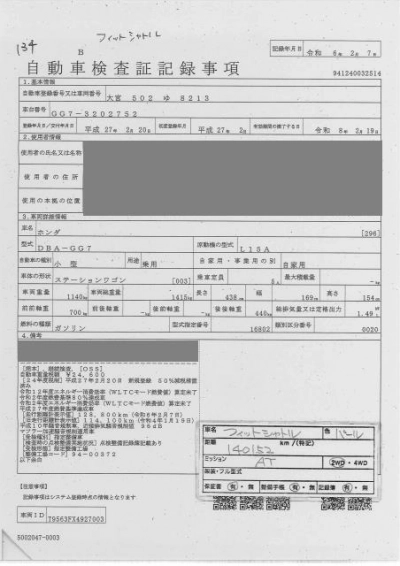 134
フィットシャトル
B
記録年月日 令和 6年 2月 7日
自動車検査証記録事項
941240032514
1.基本情報
自動車登録番号又は車両番号 大宮 502 ゆ 8213
車台番号 GG7-3202752
登録年月日/交付年月日 平成 27年 2月 20日 初度登録年月 平成 27年 2月 有効期間の満了する日 令和 8年 2月 19日
2.使用者情報
使用者の氏名又は名称
使用者の住所
使用の本拠の位置
3.車両詳細情報
車名 ホンダ [296]
型式 DBA-GG7 原動機の型式 L15A
自動車の種別 小型 用途 乗用 自家用・事業用の別 自家用
車体の形状 ステーションワゴン [003] 乗車定員 5人 最大積載量 -kg
車両重量 1140kg 車両総重量 1415kg 長さ 438cm 幅 169cm 高さ 154cm
前前軸重 700kg 前後軸重 -kg 後前軸重 -kg 後後軸重 440kg 総排気量又は定格出力 1.49L
燃料の種類 ガソリン 型式指定番号 16802 類別区分番号 0020
4.備考
自動車重量税額 ¥24,600
車名 フィットシャトル 色 パール
距離 140152 km/(特記)
ミッション AT 2WD・4WD
車両ID 79563FX4927003
[注意事項]
記録事項はシステム登録時点の情報となります
5002047-0003